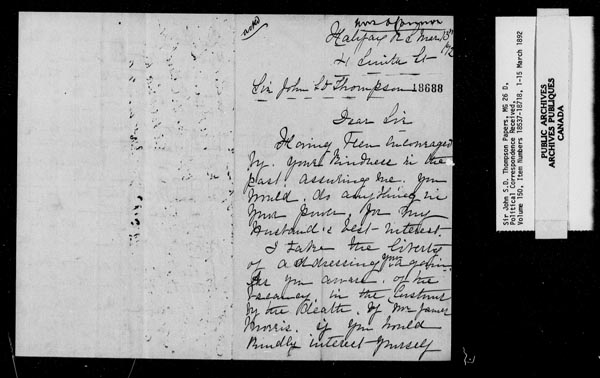 Halifax N S Mar 13th
/92
4 Smith St
Sir John S D Thompson 18688
Dear Sir
Having Feen encouraged
by your Kindness in the
past. assuring me. you
would. do anything in
your power, for my
Husband's best-interest.
I take the liberty
of addressing you again.
Are you aware. of the
vacancy. in the Customs
by the Death. of Mr James
Morris. if you would
Kindly interest yourself
Sir John S.D. Thompson Papers, MG 26 D,
Political Correspondence Received,
Volume 150, Item Numbers 18537-18718, 1-15 March 1892
PUBLIC ARCHIVES
ARCHIVES PUBLIQUES
CANADA